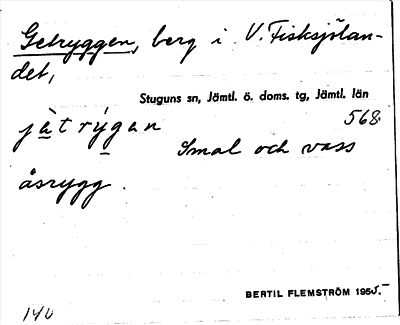 Getryggen, berg i V. Fisksjölan-
det,
Stuguns sn, Jämtl. ö. doms. tg, Jämtl. län
jȁt rỳgan 568
Smal och vass
åsrygg.
BERTIL FLEMSTRÖM 1955.
140